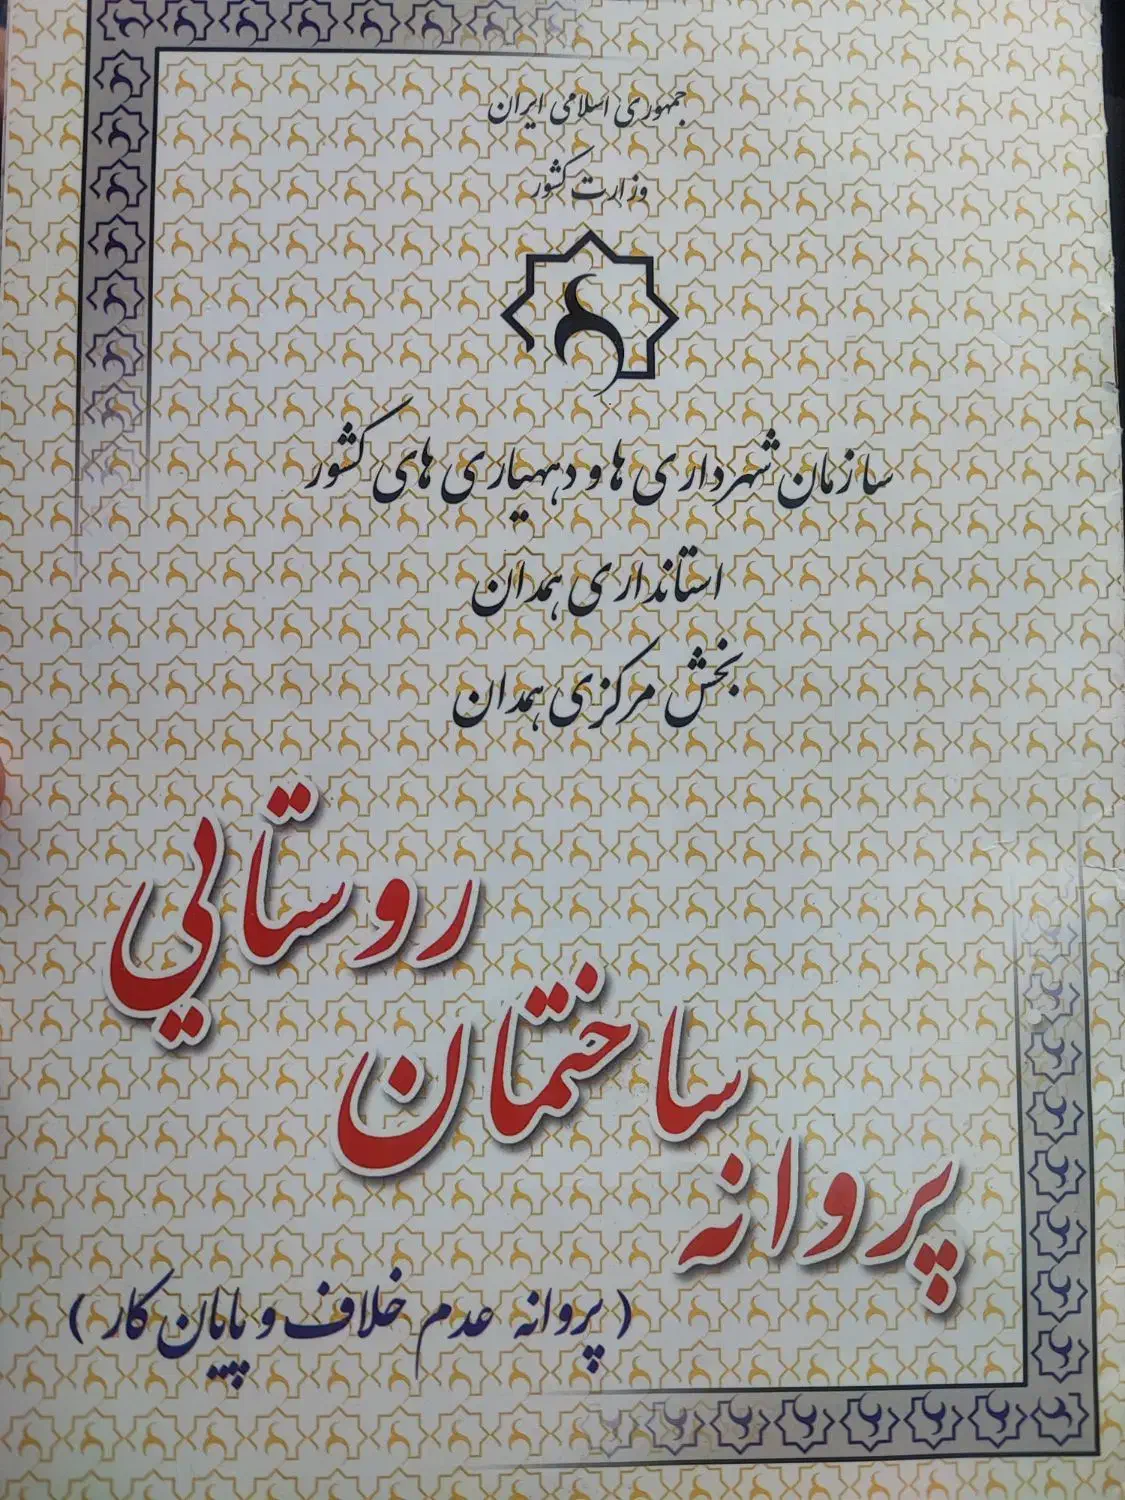 جمهوری اسلامی ایران
وزارت کشور
سازمان شهرداری ها و دهیاری های کشور
استانداری همدان
بخش مرکزی همدان
پروانه ساختمان روستایی
( پروانه عدم خلاف و پایان کار )